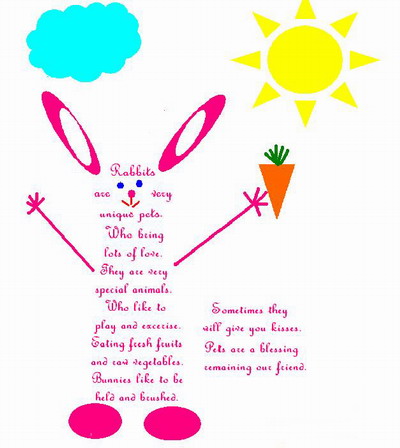 Rabbits
are very
unique pets.
Who bring
lots of love.
They are very
special animals.
Who like to
play and excerise.
Eating fresh fruits
and raw vegetables.
Bunnies like to be
held and brushed.
Sometimes they
will give you kisses.
Pets are a blessing
remaining our friend.